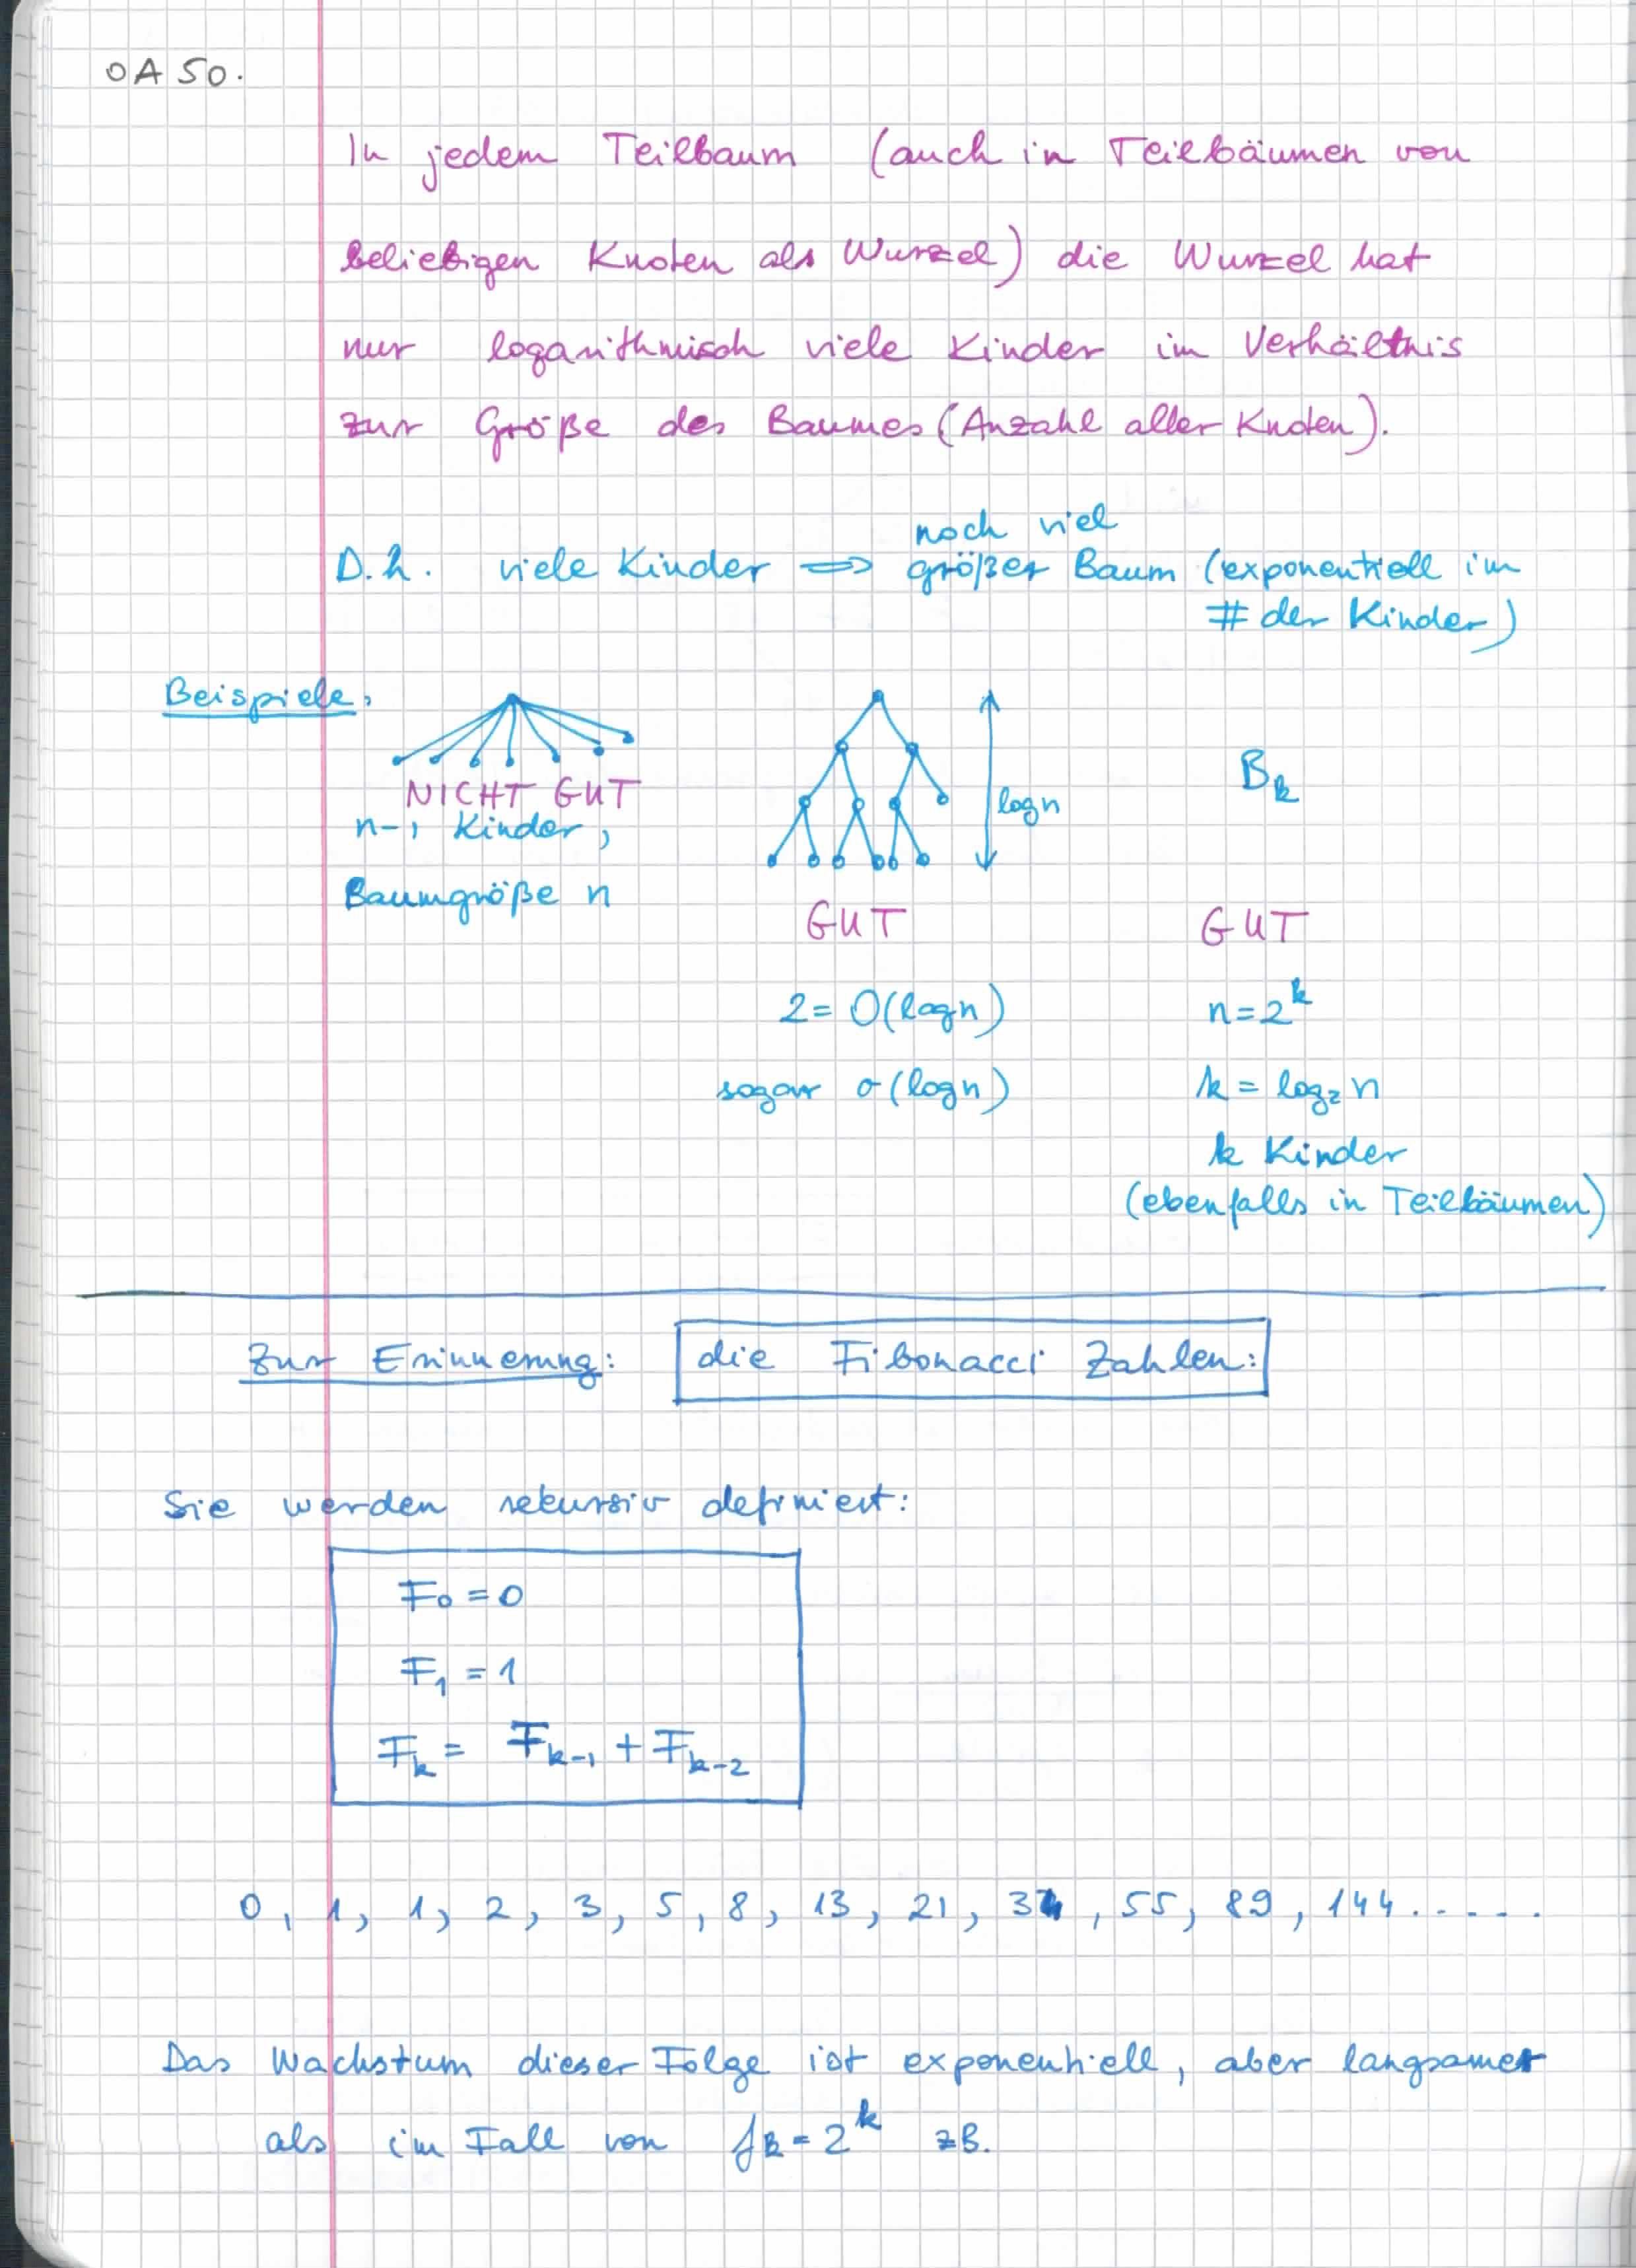 OA 50.
In jedem Teilbaum (auch in Teilbäumen von
beliebigen Knoten als Wurzel) die Wurzel hat
nur logarithmisch viele Kinder im Verhältnis
zur Größe des Baumes (Anzahl aller Knoten).
noch viel
D.h. viele Kinder ⟹ größer Baum (exponentiell im
# der Kinder)
Beispiele:
NICHT GUT
n-1 Kinder,
Baumgröße n
log n
GUT
2 = O(log n)
sogar o(log n)
B_k
GUT
n = 2^k
k = log_2 n
k Kinder
(ebenfalls in Teilbäumen)
Zur Erinnerung: die Fibonacci Zahlen:
Sie werden rekursiv definiert:
F_0 = 0
F_1 = 1
F_k = F_{k-1} + F_{k-2}
0, 1, 1, 2, 3, 5, 8, 13, 21, 34, 55, 89, 144.....
Das Wachstum dieser Folge ist exponentiell, aber langsamer
als im Fall von f_k = 2^k zB.